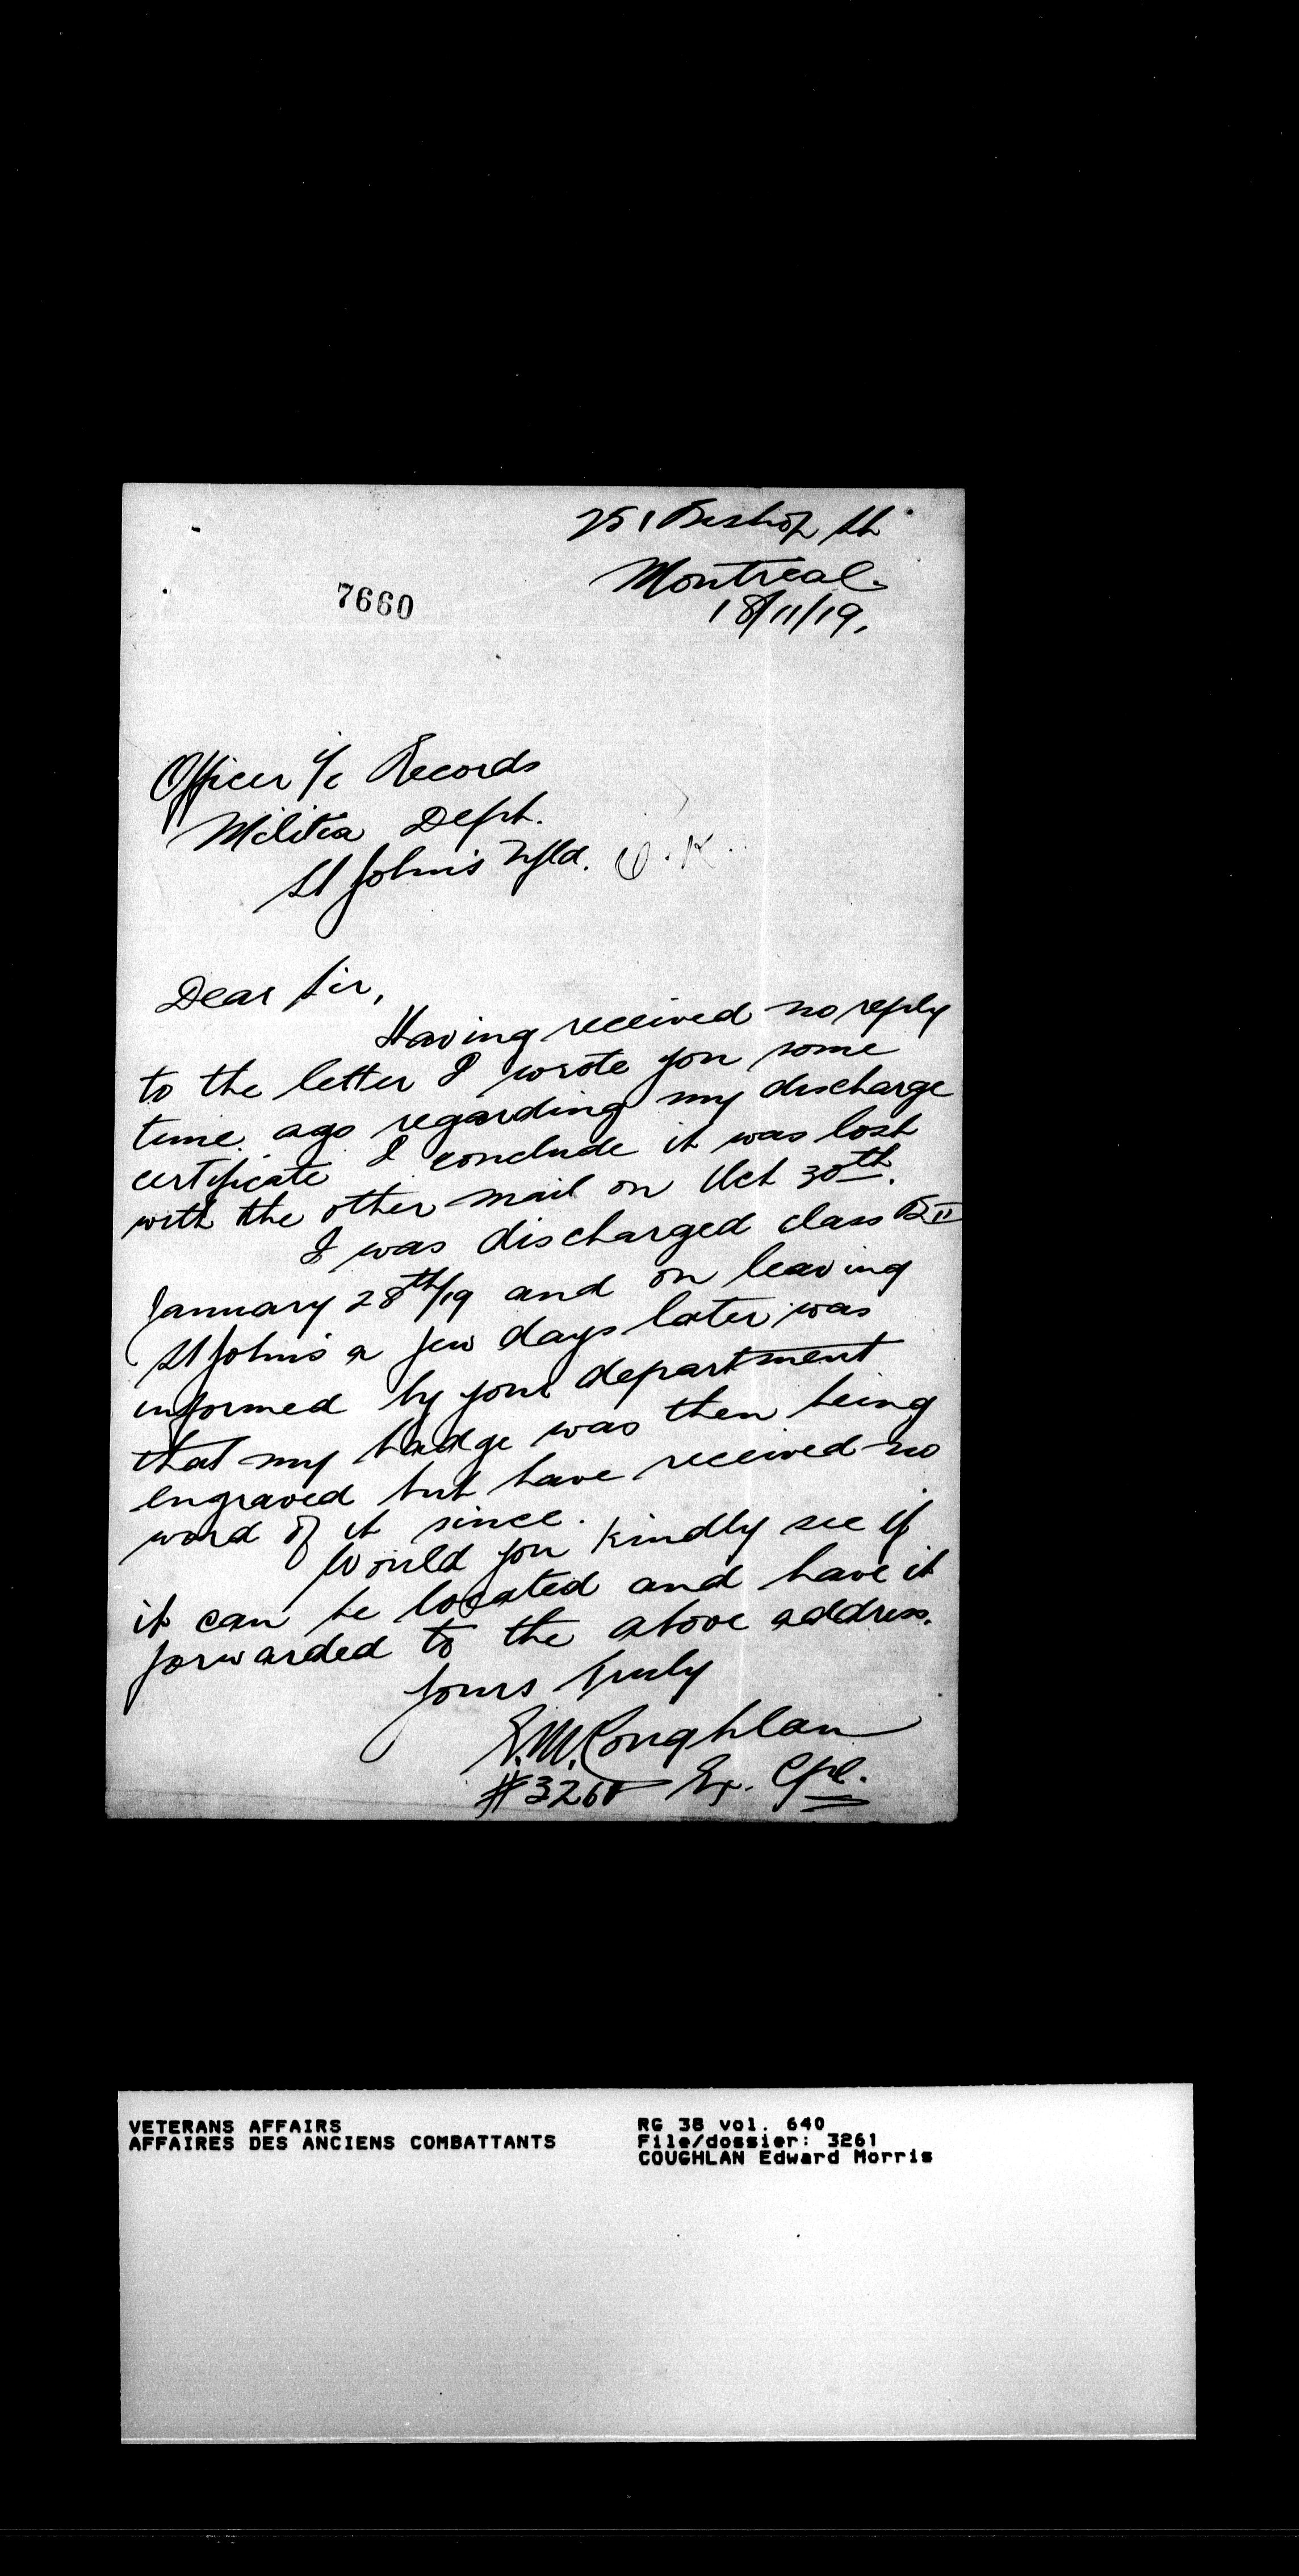 251 Bishop St
Montreal.
18/11/19.
7660
Officer i/c Records
Militia Dept.
St John's Nfld. O.K.
Dear Sir,
Having received no reply
to the letter I wrote you some
time ago regarding my discharge
certificate I conclude it was lost
with the other mail on Oct 30th.
I was discharged class
January 28th/19 and on leaving
St John's a few days later was
informed by your department
that my badge was then being
engraved but have received no
word of it since.
Would you kindly see if
it can be located and have it
forwarded to the above address.
Yours truly
E.M. Coughlan
Ex. Cpl.
VETERANS AFFAIRS
AFFAIRES DES ANCIENS COMBATTANTS
RG 38 vol. 640
File/dossier: 3261
COUGHLAN Edward Morris